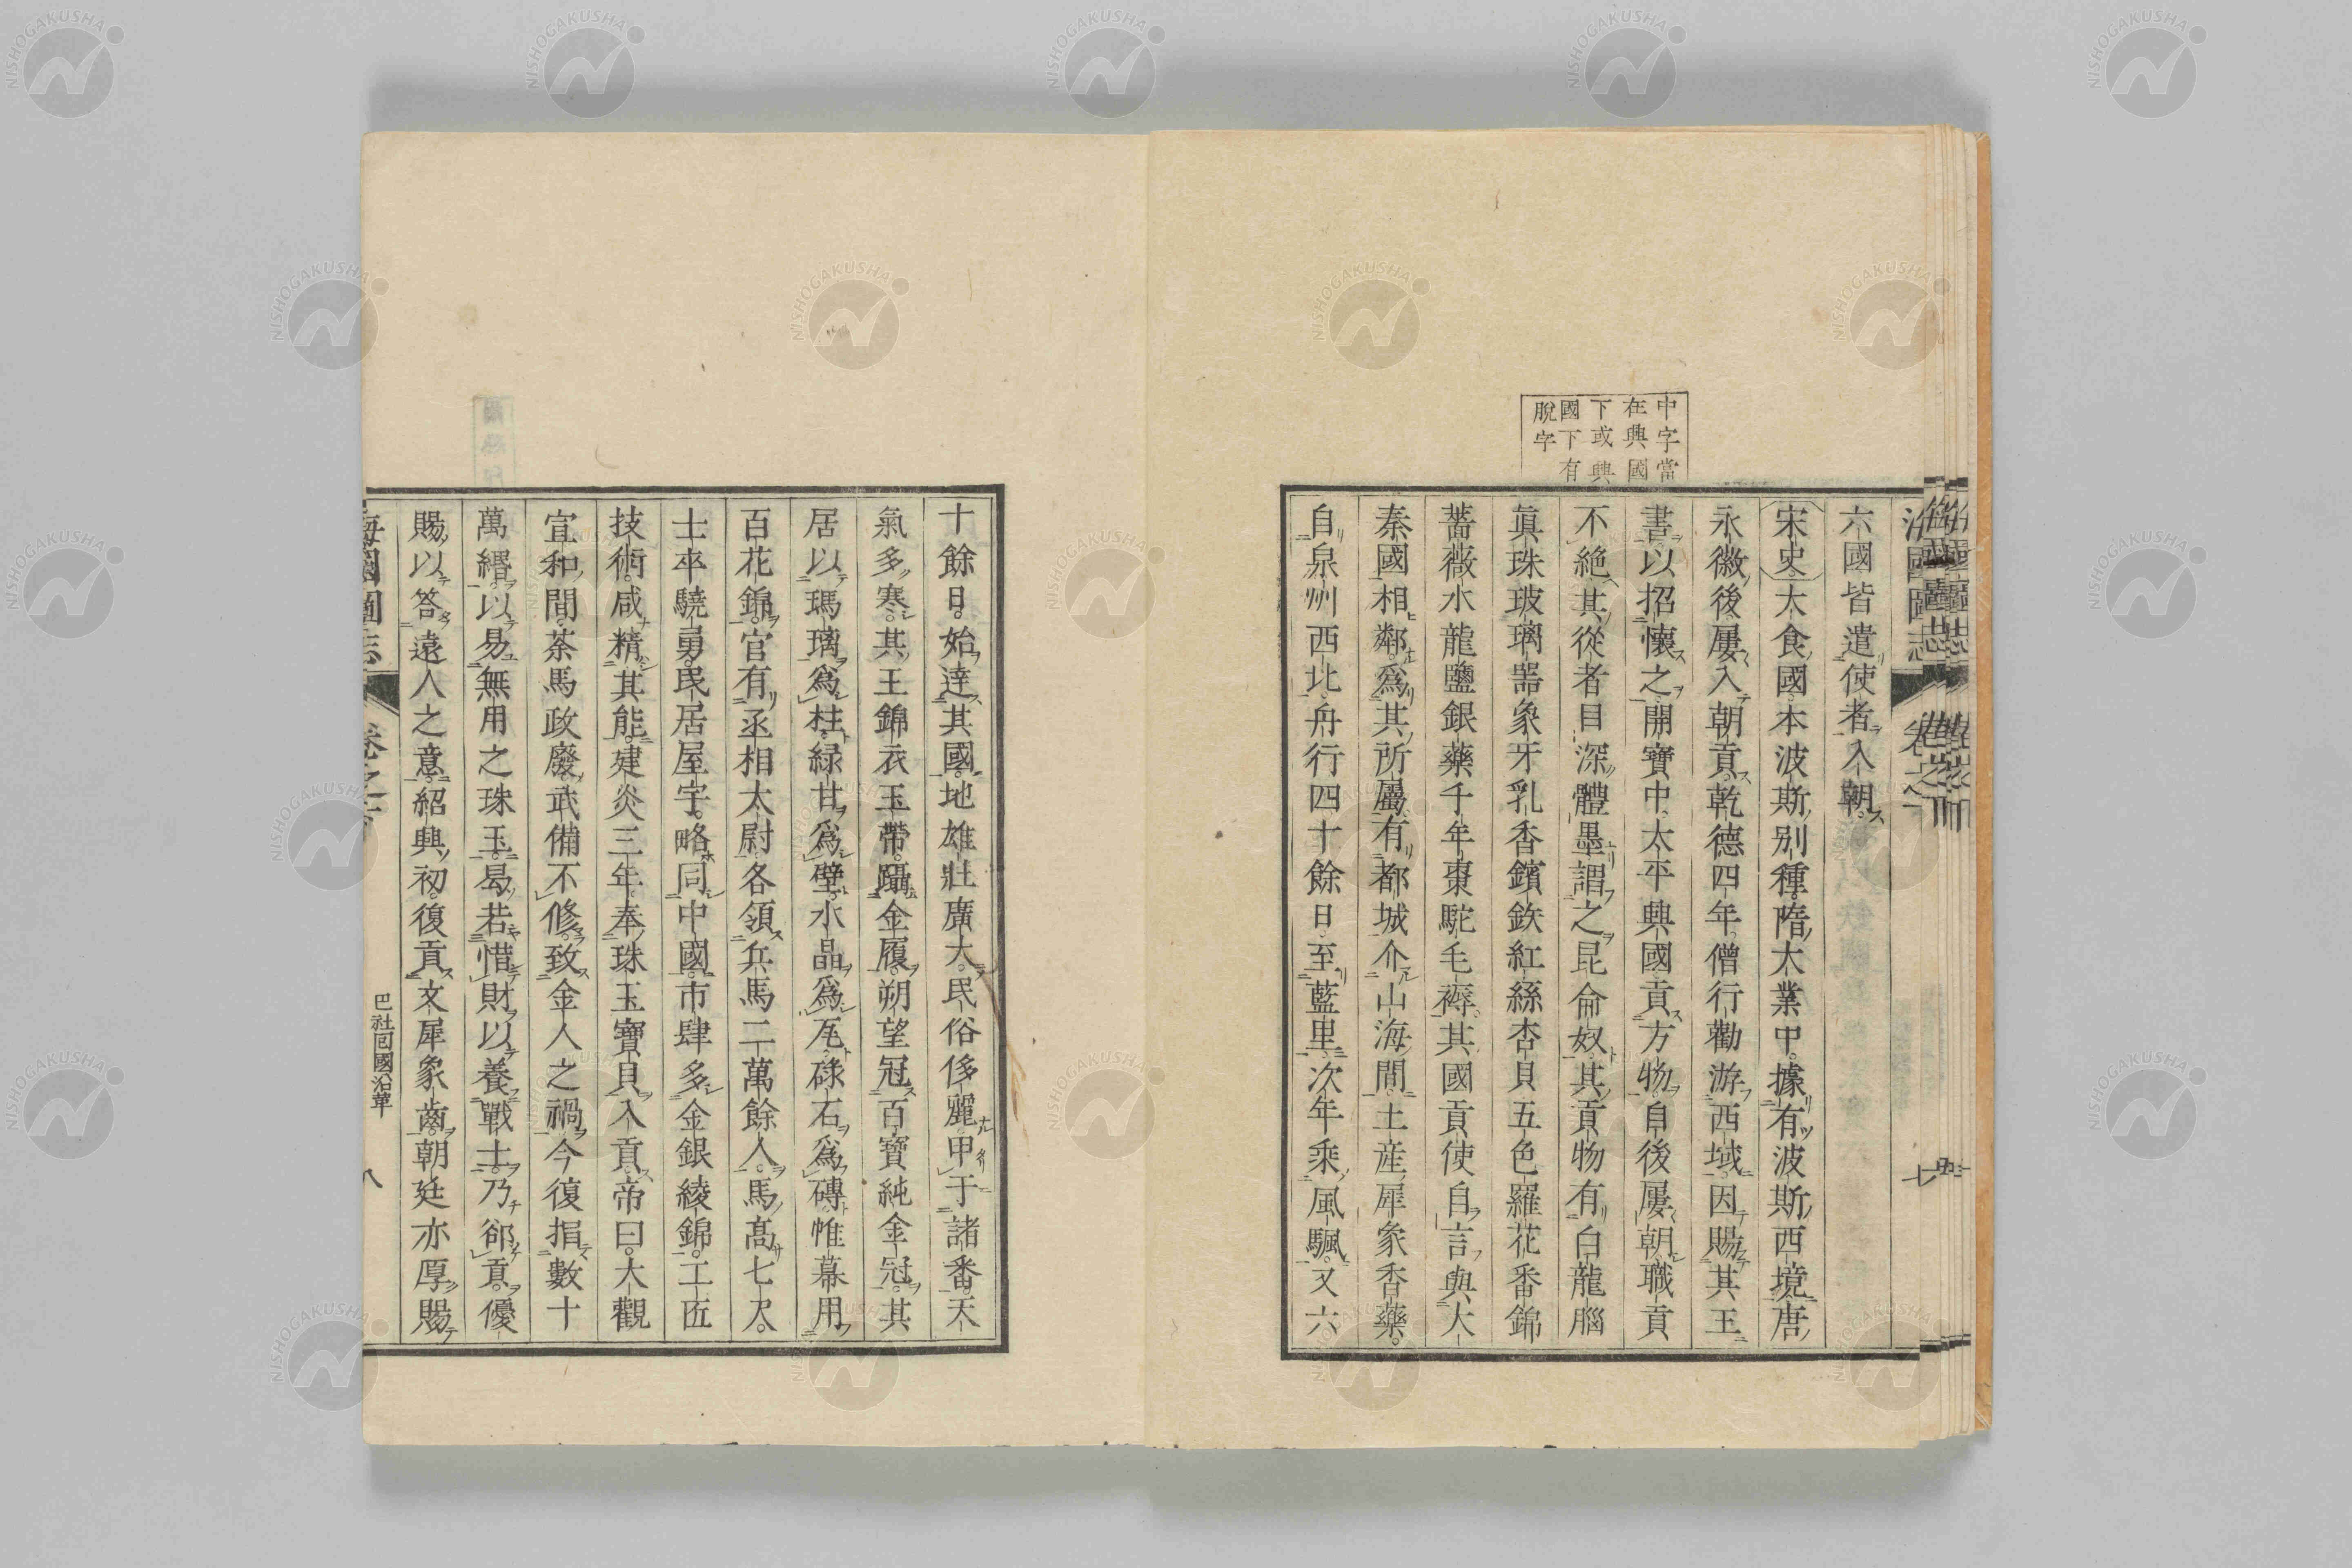 中字當
在興國
下或興
國下有
脫字
六國皆遣使者入朝
宋史大食國本波斯別種隋大業中據有波斯西境唐
永徽後屢入朝貢乾德四年僧行勸游西域因賜其王
書以招懷之開寶中太平興國貢方物自後屢朝職貢
不絶其從者目深體墨謂之昆侖奴其貢物有白龍腦
眞珠玻璃器象牙乳香鑌鉄紅絲杏貝五色羅花番錦
薔薇水龍鹽銀藥千年棗駝毛褥其國貢使自言與大
秦國相鄰爲其所屬有都城介山海間土産犀象香藥
自泉州西北舟行四十餘日至藍里次年乘風颿又六
十餘日始達其國地雄壯廣大民俗侈麗甲于諸番天
氣多寒其王錦衣玉帶躡金履朔望冠百寶純金冠其
居以瑪璃爲柱緑甘爲壁水晶爲瓦碌石爲磚帷幕用
百花錦官有丞相太尉各領兵馬二萬餘人馬高七尺
士卒驍勇民居屋宇略同中國市肆多金銀綾錦工匠
技術咸精其能建炎三年奉珠玉寶貝入貢帝曰大觀
宣和間茶馬政廢武備不修致金人之禍今復捐數十
萬緡以易無用之珠玉曷若惜財以養戰士乃郤貢優
賜以答遠人之意紹興初復貢文犀象齒朝廷亦厚賜
巴社回國沿革
八
海國圖志
NISHOGAKUSHA